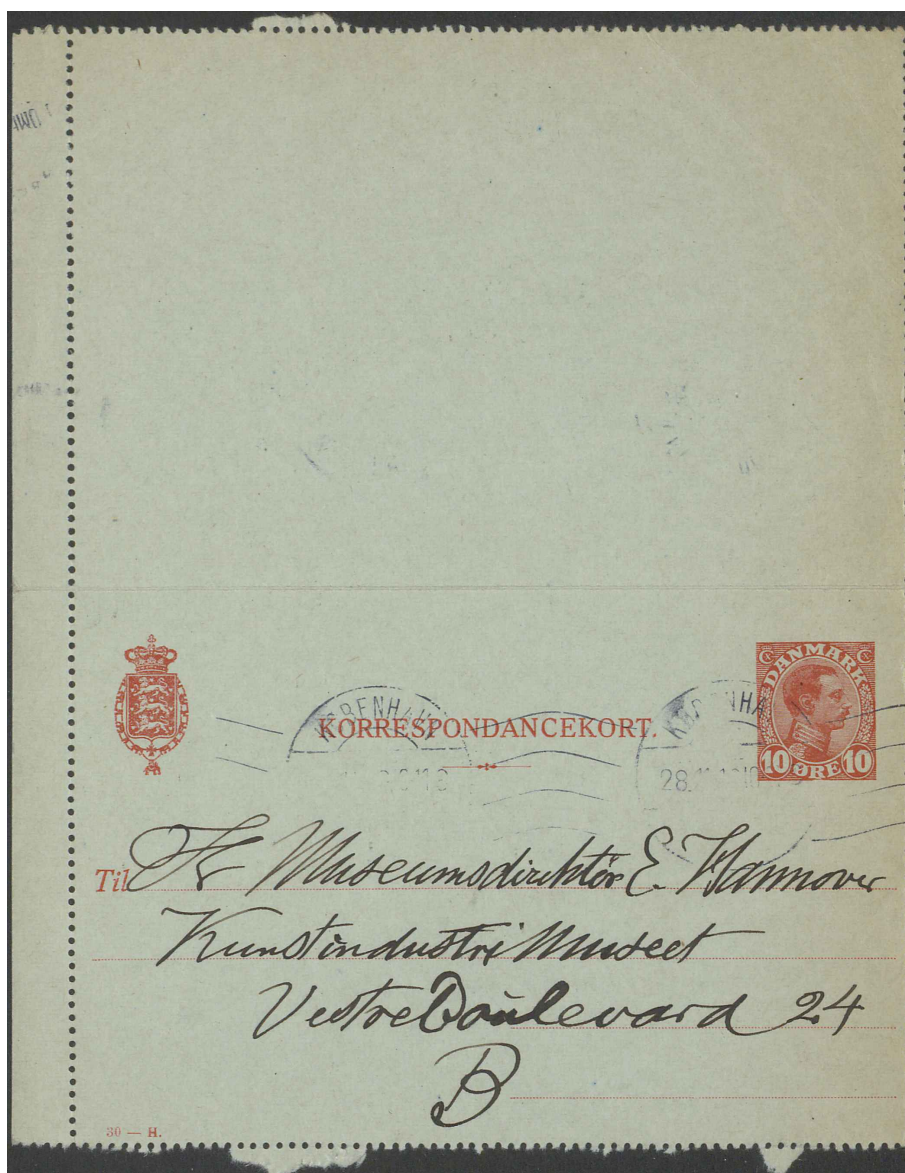 KØBENHAV
KORRESPONDANCEKORT.
KØBENHA
28.11.
DANMARK
10 ØRE 10
Til Hr Museumsdirektör E. Hannover
Kunstindustri Museet
Vestre Boulevard 24
B
30 — H.